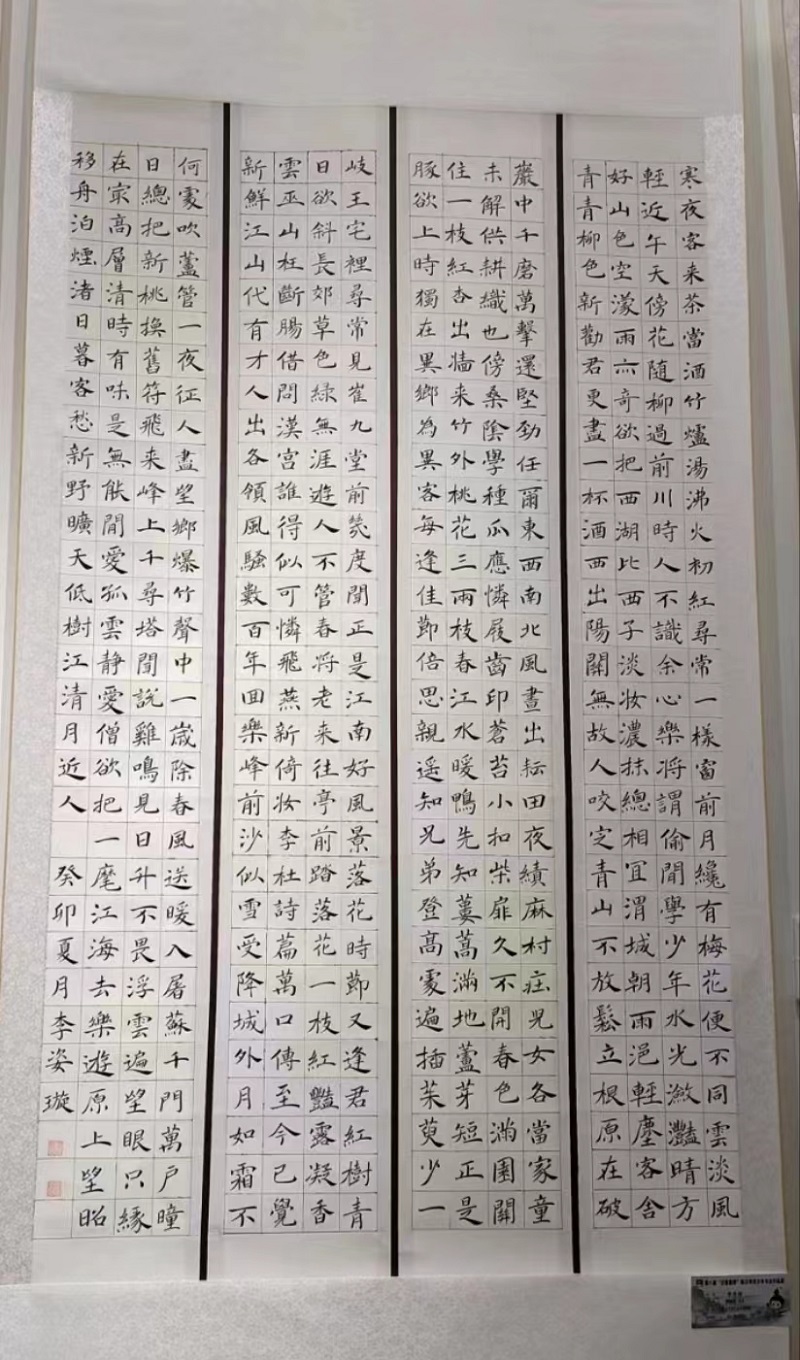 寒夜客来茶當酒竹爐湯沸火初紅尋常一樣窗前月纔有梅花便不同雲淡風
輕近午天傍花随柳過前川時人不識余心樂將謂偷閒學少年水光瀲灧晴方
好山色空濛雨亦奇欲把西湖比西子淡妝濃抹總相宜渭城朝雨浥輕塵客舍
青青柳色新勸君更盡一杯酒西出陽關無故人咬定青山不放鬆立根原在破
巖中千磨萬擊還堅勁任爾東西南北風晝出耘田夜績麻村莊兒女各當家童
未解供耕織也傍桑陰學種瓜應憐屐齒印蒼苔小扣柴扉久不開春色滿園關
住一枝紅杏出墙来竹外桃花三兩枝春江水暖鴨先知蔞蒿滿地蘆芽短正是
豚欲上時獨在異鄉為異客每逢佳節倍思親遥知兄弟登高處遍插茱萸少一
岐王宅裡尋常見崔九堂前幾度聞正是江南好風景落花時節又逢君紅樹青
日欲斜長郊草色綠無涯遊人不管春將老来往亭前踏落花一枝紅豔露凝香
雲巫山枉斷腸借問漢宮誰得似可憐飛燕新倚妝李杜詩篇萬口傳至今已覺
新鮮江山代有才人出各領風騷數百年回樂峰前沙似雪受降城外月如霜不
何處吹蘆管一夜征人盡望鄉爆竹聲中一歲除春風送暖入屠蘇千門萬户曈
日總把新桃換舊符飛来峰上千尋塔聞説雞鳴見日升不畏浮雲遍望眼只緣
在最高層清時有味是無能閒愛孤雲靜愛僧欲把一麾江海去樂遊原上望昭
移舟泊煙渚日暮客愁新野曠天低樹江清月近人
癸卯夏月李姿璇